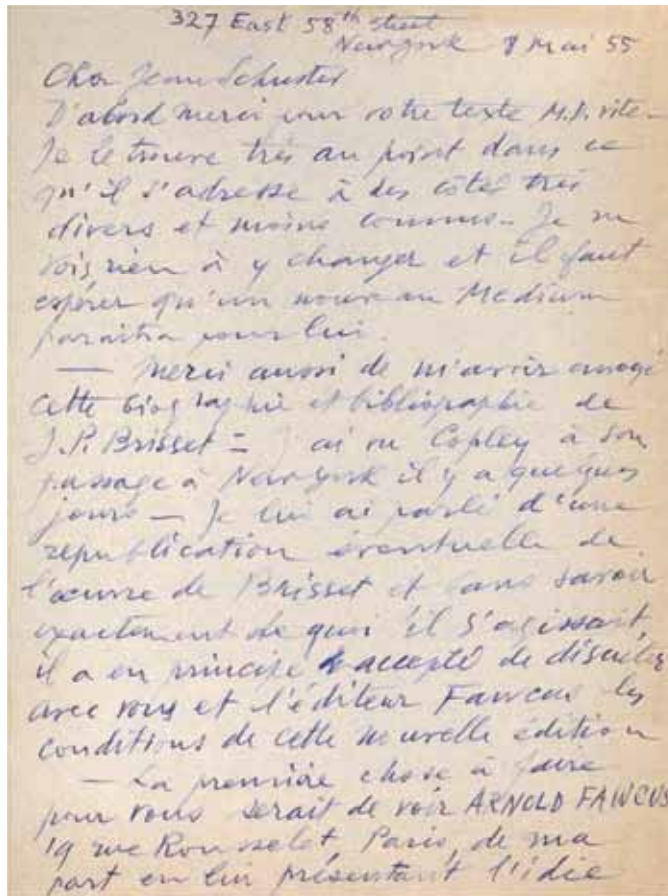 327 East 58th Street
New York 8 Mai 55
Cher Jean Schuster
D'abord merci pour votre texte M.D. vite_
Je le trouve très au point dans ce
qu'il s'adresse à des côtés très
divers et moins connus_ Je ne
vois rien à y changer et il faut
espérer qu'un nouveau Medium
paraîtra pour lui.
— Merci aussi de m'avoir envoyé
cette biographie et bibliographie de
J.P. Brisset = J'ai vu Copley à son
passage à New York il y a quelques
jours — Je lui ai parlé d'une
republication éventuelle de
l'œuvre de Brisset et sans savoir
exactement de quoi il s'agissait,
il a en principe accepté de discuter
avec vous et l'éditeur Fawcus les
conditions de cette nouvelle édition
— La première chose à faire
pour vous serait de voir ARNOLD FAWCUS
19 rue Rousselet, Paris, de ma
part en lui présentant l'idée